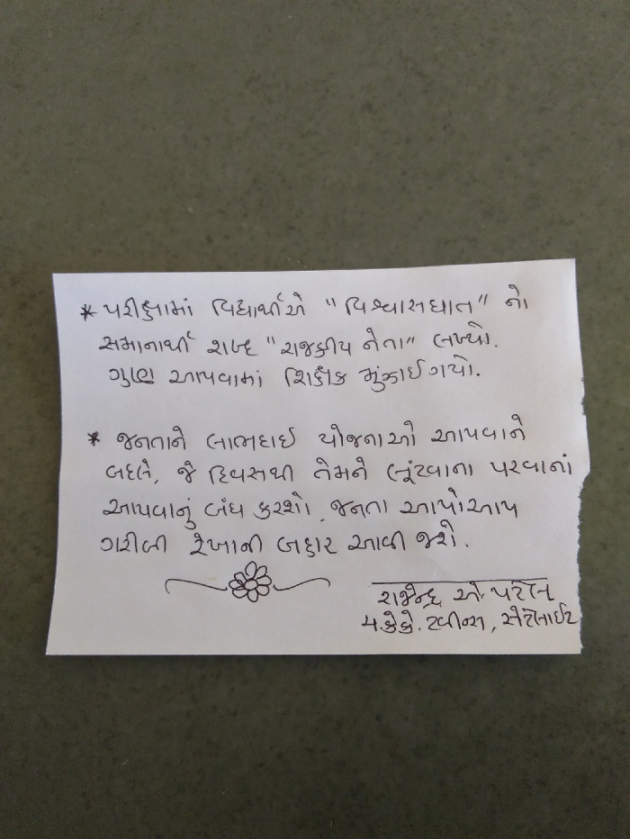 * પરીક્ષામાં વિદ્યાર્થીએ "વિશ્વાસઘાત" નો
સમાનાર્થી શબ્દ "રાજકીય નેતા" લખ્યો.
ગુણ આપવામાં શિક્ષક મુંઝાઈ ગયો.
* જનતાને લાભદાઈ યોજનાઓ આપવાને
બદલે, જે દિવસથી તેમને લૂંટવાના પરવાનાં
આપવાનું બંધ કરશો, જનતા આપોઆપ
ગરીબી રેખાની બહાર આવી જશે.
રાજેન્દ્ર એ. પટેલ
૫. કે.કે. ટવીન્સ, સેટેલાઈટ